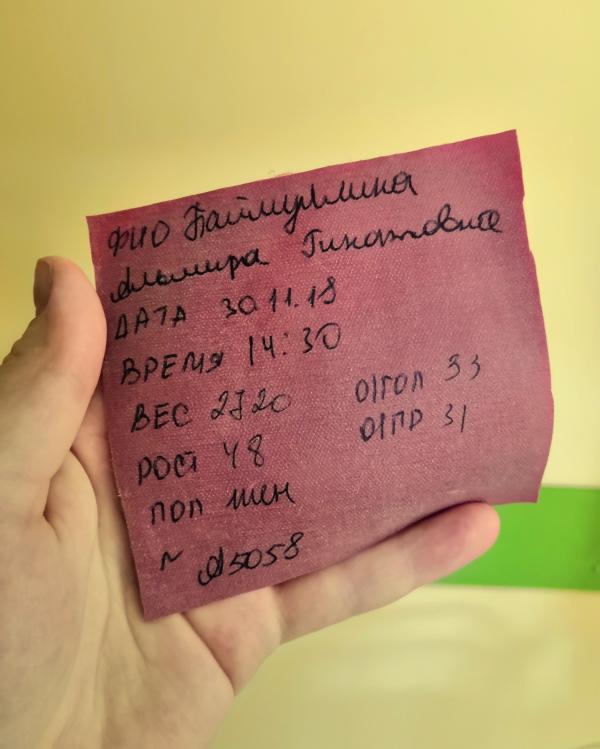 ФИО Баймуллина
Альмира Гинатовна
ДАТА 30.11.18
ВРЕМЯ 14:30
ВЕС 2720 О/ГОЛ 33
РОСТ 48 О/ГР 31
ПОЛ жен
N А5058